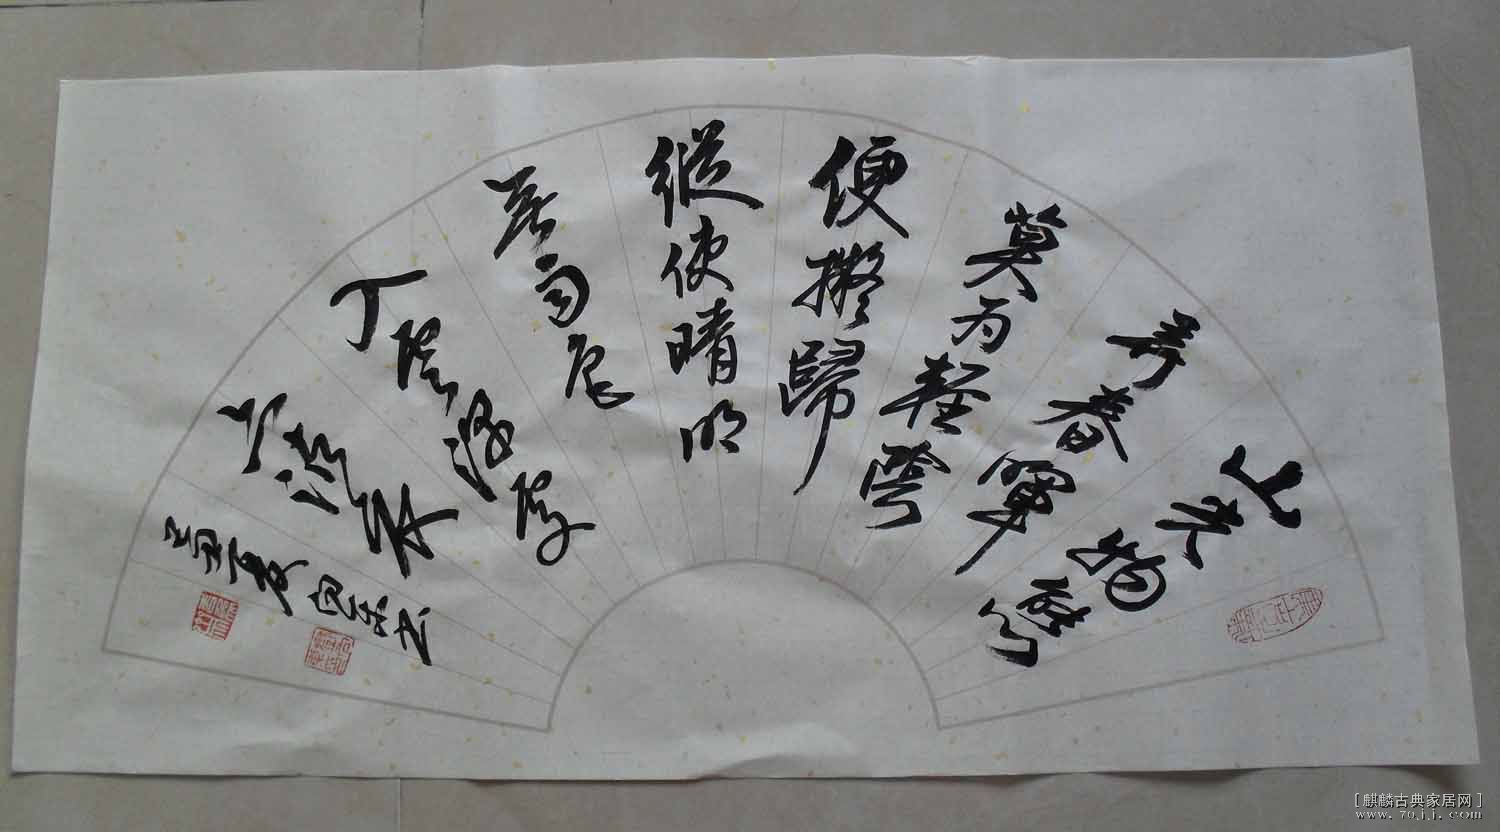 山光物態
弄春暉
莫为輕陰
便擬歸
縱使晴明
無雨色
入雲深處
亦沾衣
夏
书
[麒麟古典家居网]
www.7ojj.com